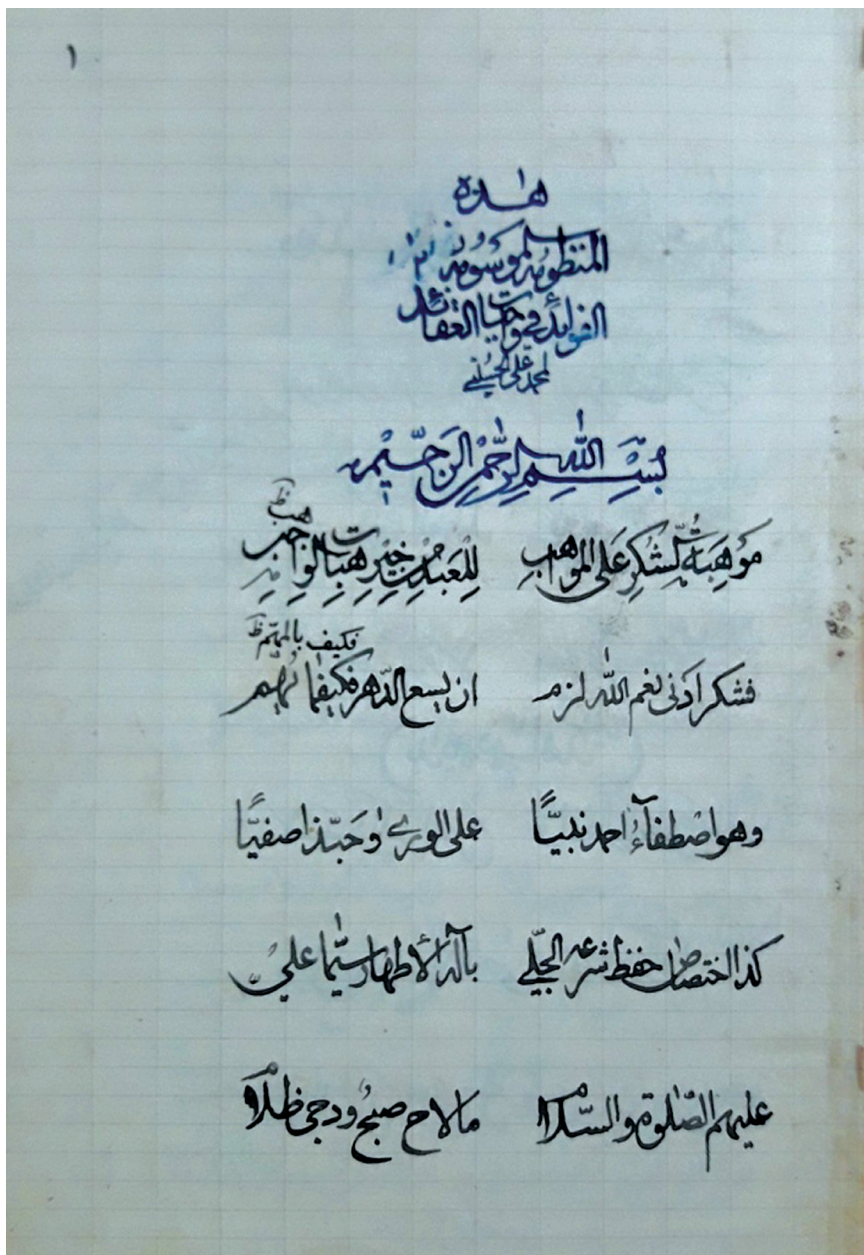 ١
هذه
المنظومة الموسومة
الفوائد في واجبات العقائد
لمحمد علي الحسيني
بِسْمِ اللهِ الرَّحْمٰنِ الرَّحِيْمِ
هب ظ
مَوْهِبَةُ الشُكرِ عَلَى المَواهِبِ لِلْعَبْدِ مِنْ خَيْرِ هِباتِ الواهِبِ
فكيف بالمهتم ظ
فشكر ادنى نعم الله لزم ان يسع الدّهر فكيف
وهو اصْطفآءُ احمد نبيًّا على الورى وَحَبّذا صفيًّا
كذا اختصاص حفظ شرعه الجَليّ بآله الأطهار سيّما عليّ
عليهم الصّلوة والسّلام ما لاح صبحٌ ودجى ظلام